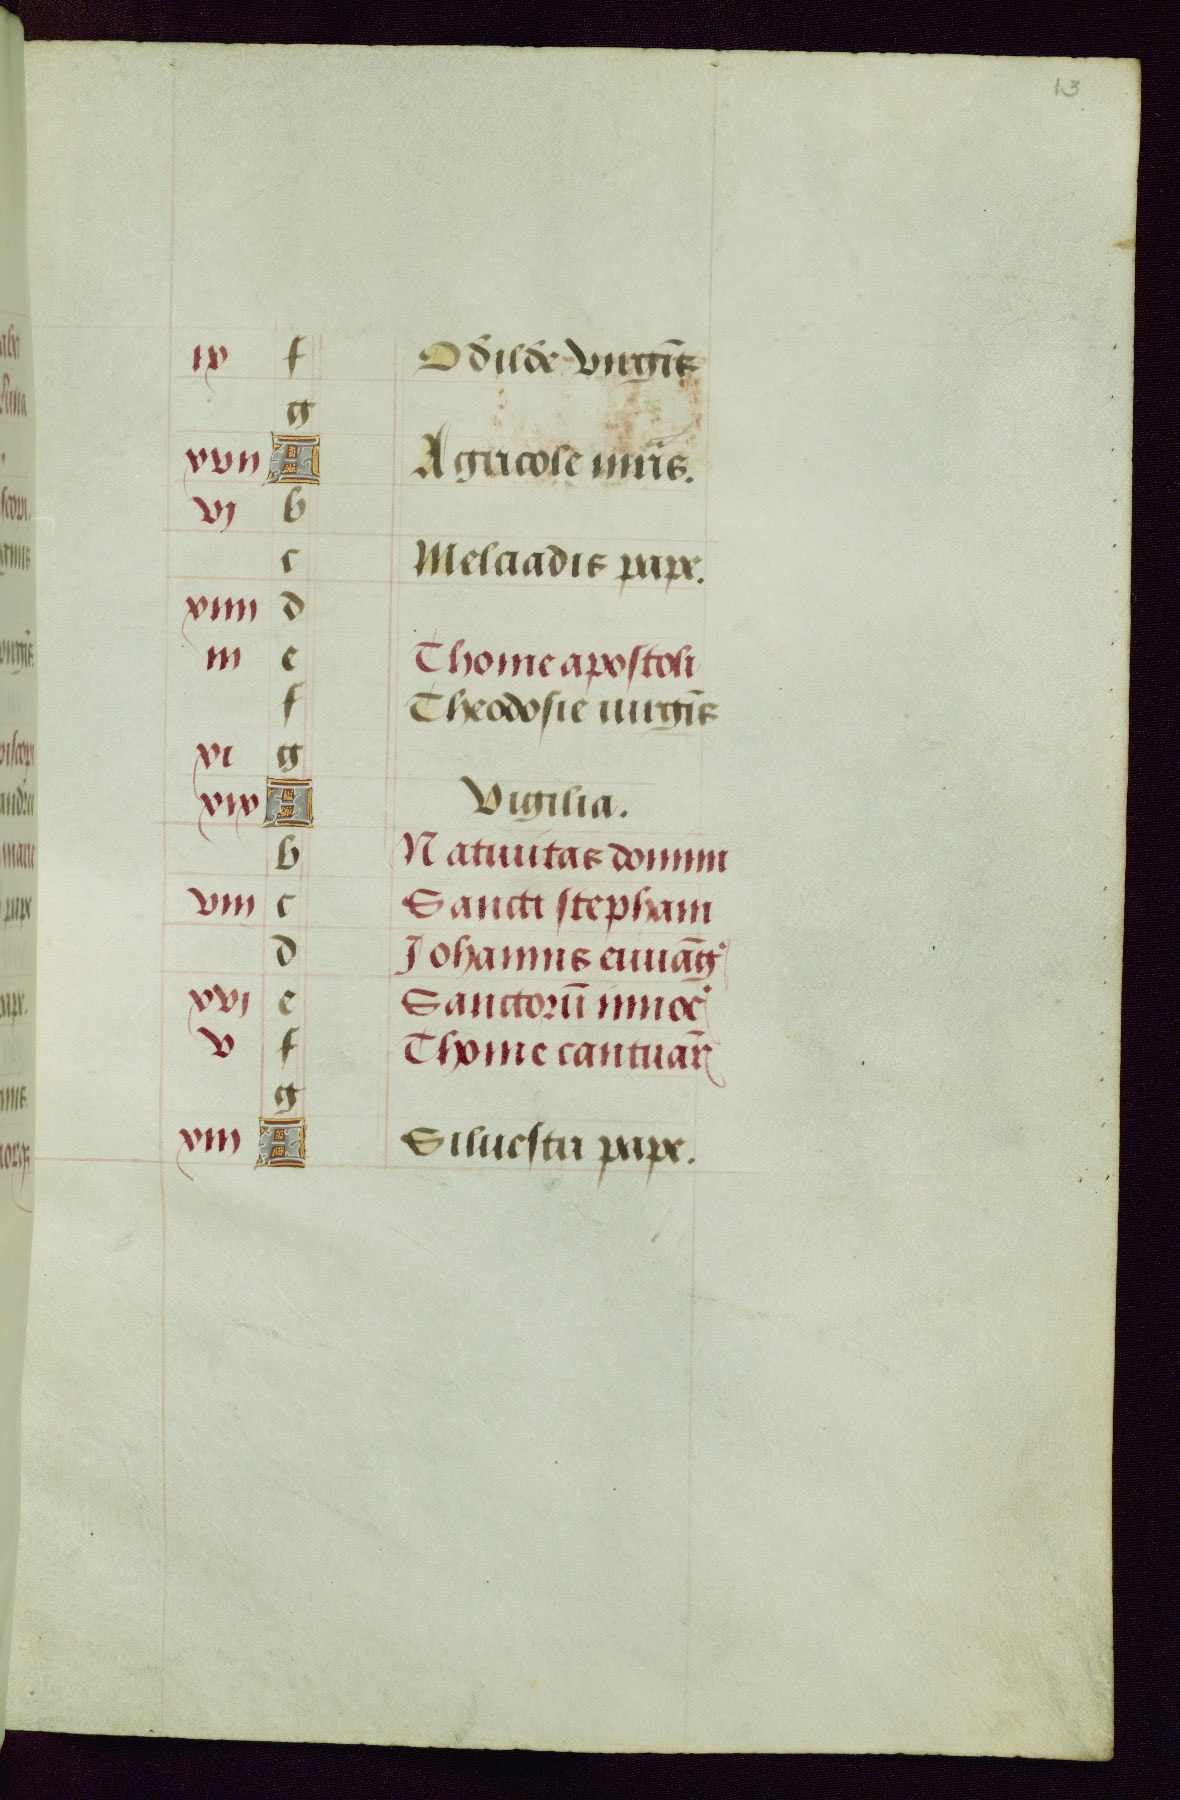 13
ix f Odilde virgīs
g
xvii A Agricole mr̄is.
vj b
c Melciadis pape.
xiiii d
iii e Thome apostoli
f Theodosie uirgīs
xi g
xix A Vigilia.
b Natiuitas domini
viii c Sancti stephani
d Johannis euuāg
xvj e Sanctorū innoc
v f Thome cantuar̄
g
xiii A Siluestri pape.